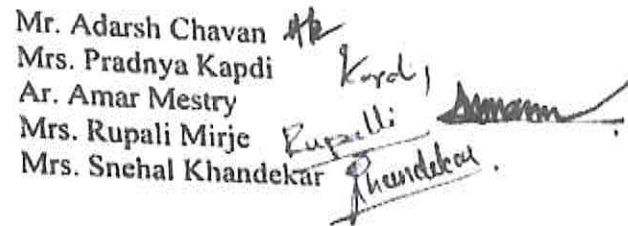 Mr. Adarsh Chavan
Mrs. Pradnya Kapdi Kapdi
Ar. Amar Mestry
Mrs. Rupali Mirje Rupalli
Mrs. Snehal Khandekar Khandekar